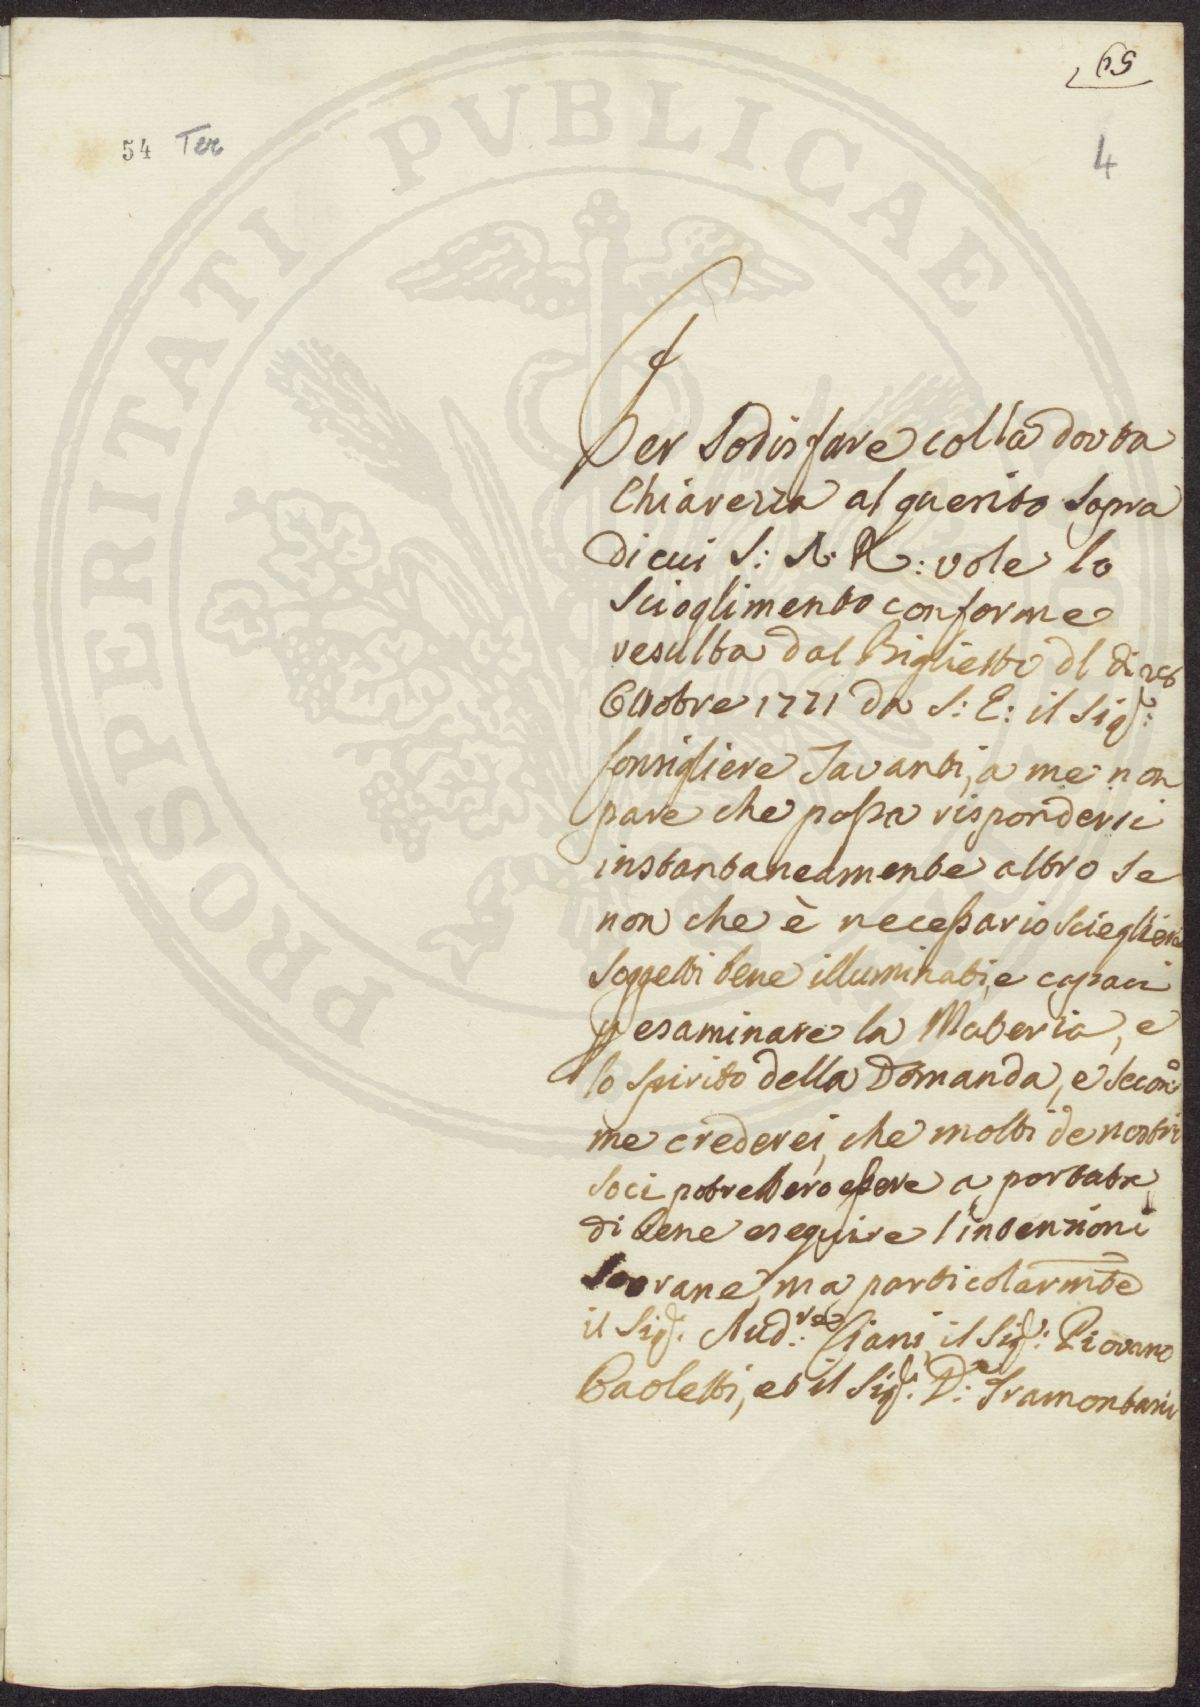 65
54 Ter
4
PROSPERITATI PVBLICAE
Per Sodisfare colla dovta
Chiarezza al quesito sopra
di cui S: A: R: vole lo
Scioglimento conforme
resulta dal Biglietto dl di 28
Ottobre 1771 da S: E: il Sig.r:
Consigliere Tavanti, a me non
pare che possa rispondersi
instantaneamente altro se
non che è necessario Sciegliere
Soggetti bene illuminati, e capaci
p esaminare la Materia, e
lo Spirito della Domanda, e Secon.o
me crederei, che molti de nostri
Soci potrebbero essere a portata
di bene eseguire l'intenzioni
Sovrane, ma particolarmte
il Sig.r: Aud.re: Giani, il Sig.r: Piovano
Paoletti, et il Sig.r: D.re: Tramontani